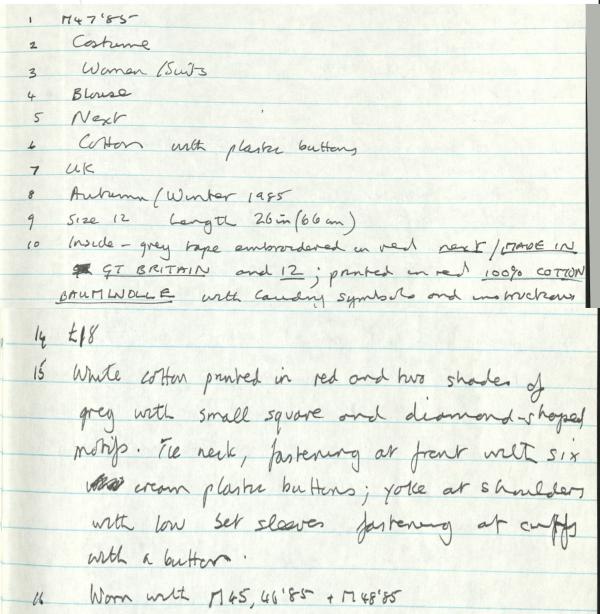 1 M47'85
2 Costume
3 Women/Suits
4 Blouse
5 Next
6 Cotton with plastic buttons
7 UK
8 Autumn/Winter 1985
9 Size 12 Length 26in(66cm)
10 Inside - grey tape embroidered in red next/MADE IN
GT BRITAIN and 12; printed in red 100% COTTON
BAUMWOLLE with laundry symbols and instructions
14 £18
15 White cotton printed in red and two shades of
grey with small square and diamond-shaped
motifs. Tie neck, fastening at front with six
cream plastic buttons; yoke at shoulders
with low set sleeves fastening at cuffs
with a button.
16 Worn with M45, 46'85 + M48'85